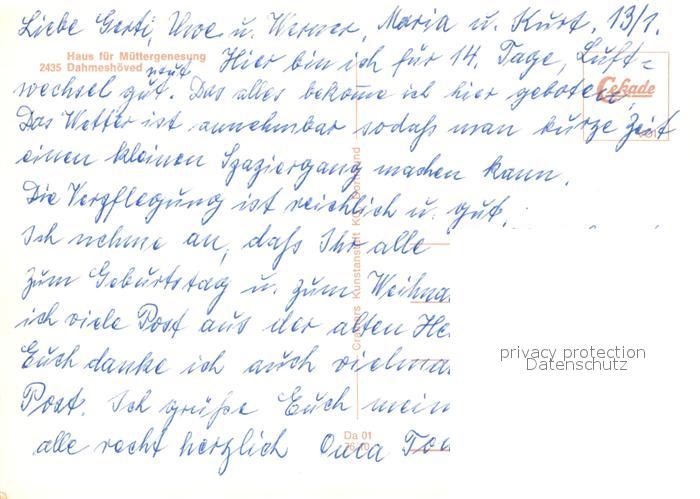 Liebe Gerti, Uwe u. Werner, Maria u. Kurt. 13/1.
Haus für Müttergenesung
2435 Dahmeshöved
Hier bin ich für 14. Tage, Luft=
wechsel tut gut. Das alles bekome ich hier geboten,
Cekade
Das Wetter ist annehmbar sodaß man kurze Zeit
einen kleinen Spaziergang machen kann.
Die Verpflegung ist reichlich u. gut.
Ich nehme an, daß Ihr alle
zum Geburtstag u. zum Weihna
ich viele Post aus der alten He
Euch danke ich auch vielma
Post. Ich grüße Euch mein
alle recht herzlich
Cramers Kunstanstalt KG Dortmund
Da 01
privacy protection
Datenschutz